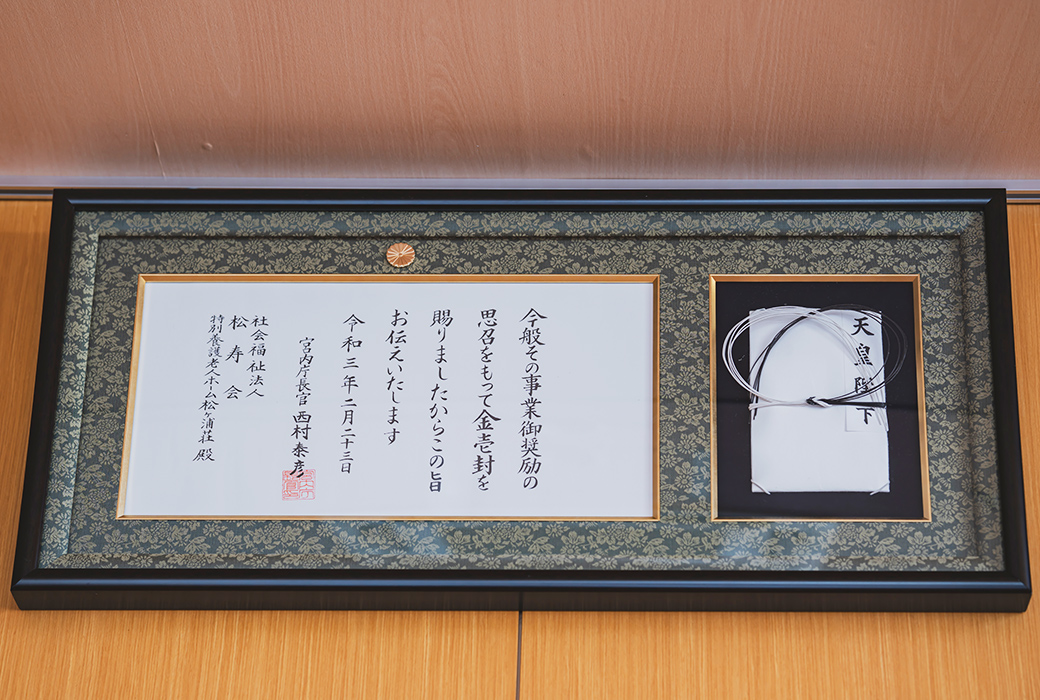 今般その事業御奨励の
思召をもって金壱封を
賜りましたからこの旨
お伝えいたします
令和三年二月二十三日
宮内庁長官 西村泰彦
社会福祉法人
松寿会
特別養護老人ホーム松ヶ浦荘 殿
天皇陛下